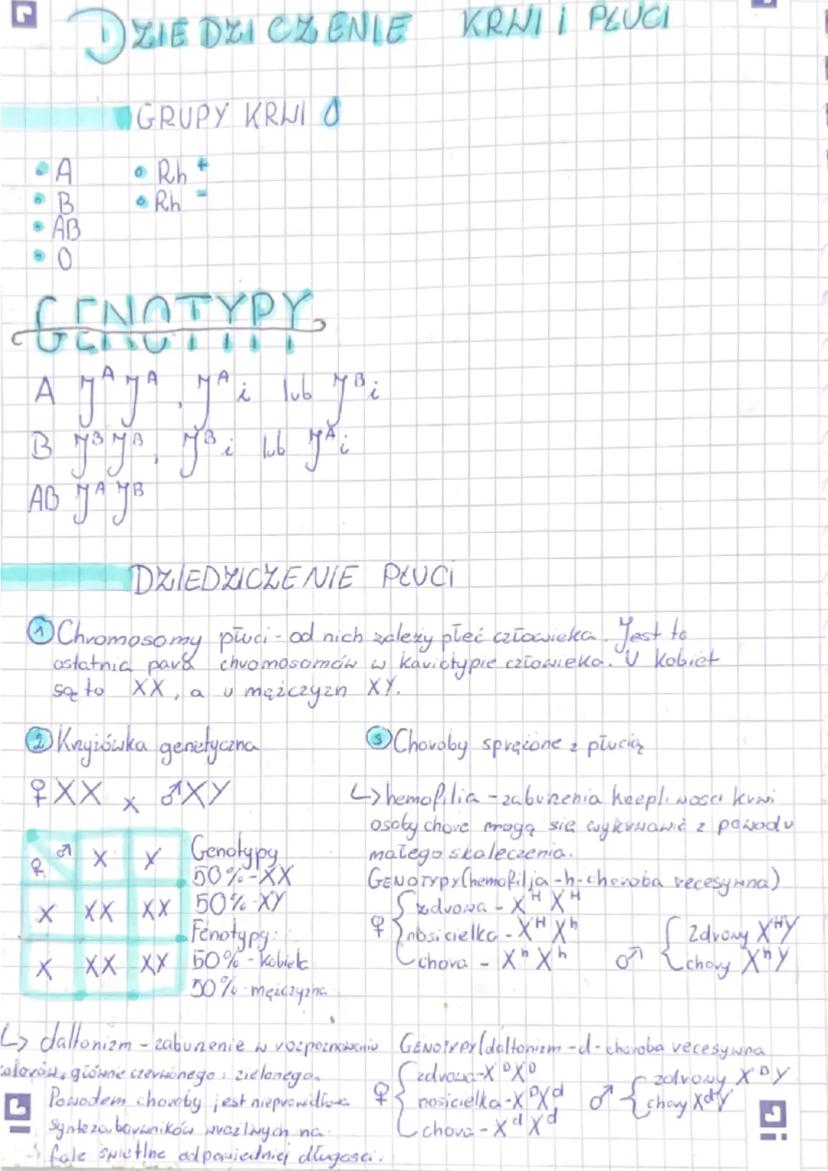 DZIEDZICZENIE KRWI I PŁUCI
GRUPY KRWI
A
B
AB
O
Rh +
Rh -
GENOTYPY
A J^A J^A, J^A i lub J^B i
B J^B J^B, J^B i lub J^A i
AB J^A J^B
DZIEDZICZENIE PŁUCI
1 Chromosomy płuci - od nich zależy płeć człowieka. Jest to
ostatnia para chromosomów w kariotypie człowieka. U kobiet
są to XX, a u mężczyzn XY.
2 Krzyżówka genetyczna
♀XX x ♂XY
♀ ♂ X X
X XX XX
X XX XX
Genotypy
50% - XX
50% - XY
Fenotypy:
50% - kobieta
50% - mężczyzna
3 Choroby sprzężone z płucią
↳ hemofilia - zaburzenia krzepliwości krwi
osoby chore mogą się wykrwawić z powodu
małego skaleczenia.
GENOTYPY (hemofilja - h - choroba recesywna)
♀ { zdrowa - X^H X^H
nosicielka - X^H X^h
chora - X^h X^h
♂ { zdrowy X^H Y
chory X^h Y
↳ daltonizm - zaburzenie w rozpoznawaniu
kolorów, głównie czerwonego i zielonego.
Powodem choroby jest nieprawidłowa
synteza barwników wrażliwych na
fale świetlne odpowiedniej długości.
GENOTYPY (daltonizm - d - choroba recesywna
♀ { zdrowa - X^D X^D
nosicielka - X^D X^d
chora - X^d X^d
♂ { zdrowy X^D Y
chory X^d Y